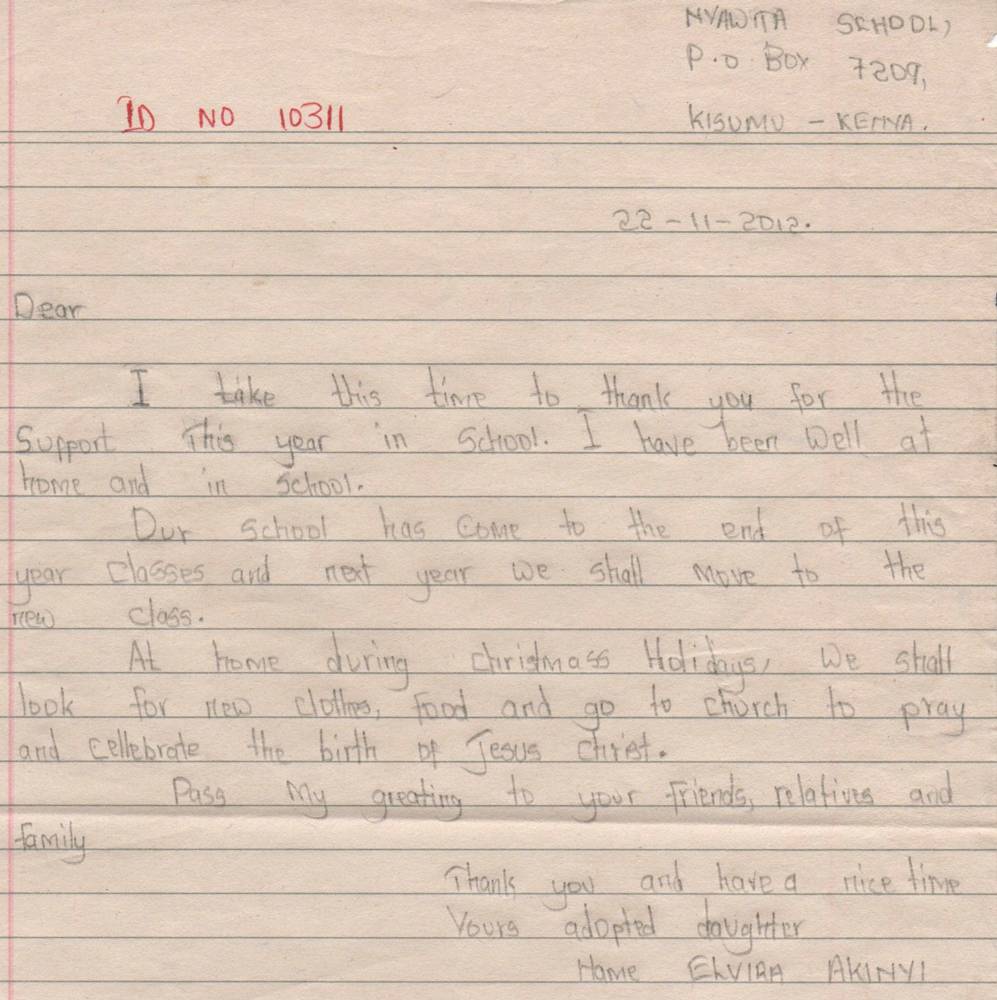 NYAWITA SCHOOL,
P.O BOX 7209,
ID NO 10311
KISUMU - KENYA.
22-11-2012.
Dear
I take this time to thank you for the
Support This year in School. I have been Well at
home and in School.
Our School has Come to the end of this
year Classes and next year we shall move to the
new Class.
At home during christmass Holidays, We shall
look for new clothes, food and go to church to pray
and cellebrate the birth of Jesus Christ.
Pass My greating to your friends, relatives and
family
Thank you and have a nice time
Yours adopted daughter
Name ELVIRA AKINYI